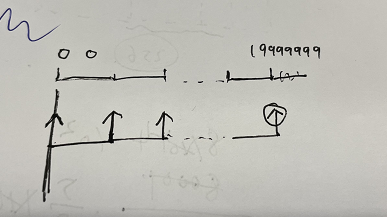 0 0 19999999